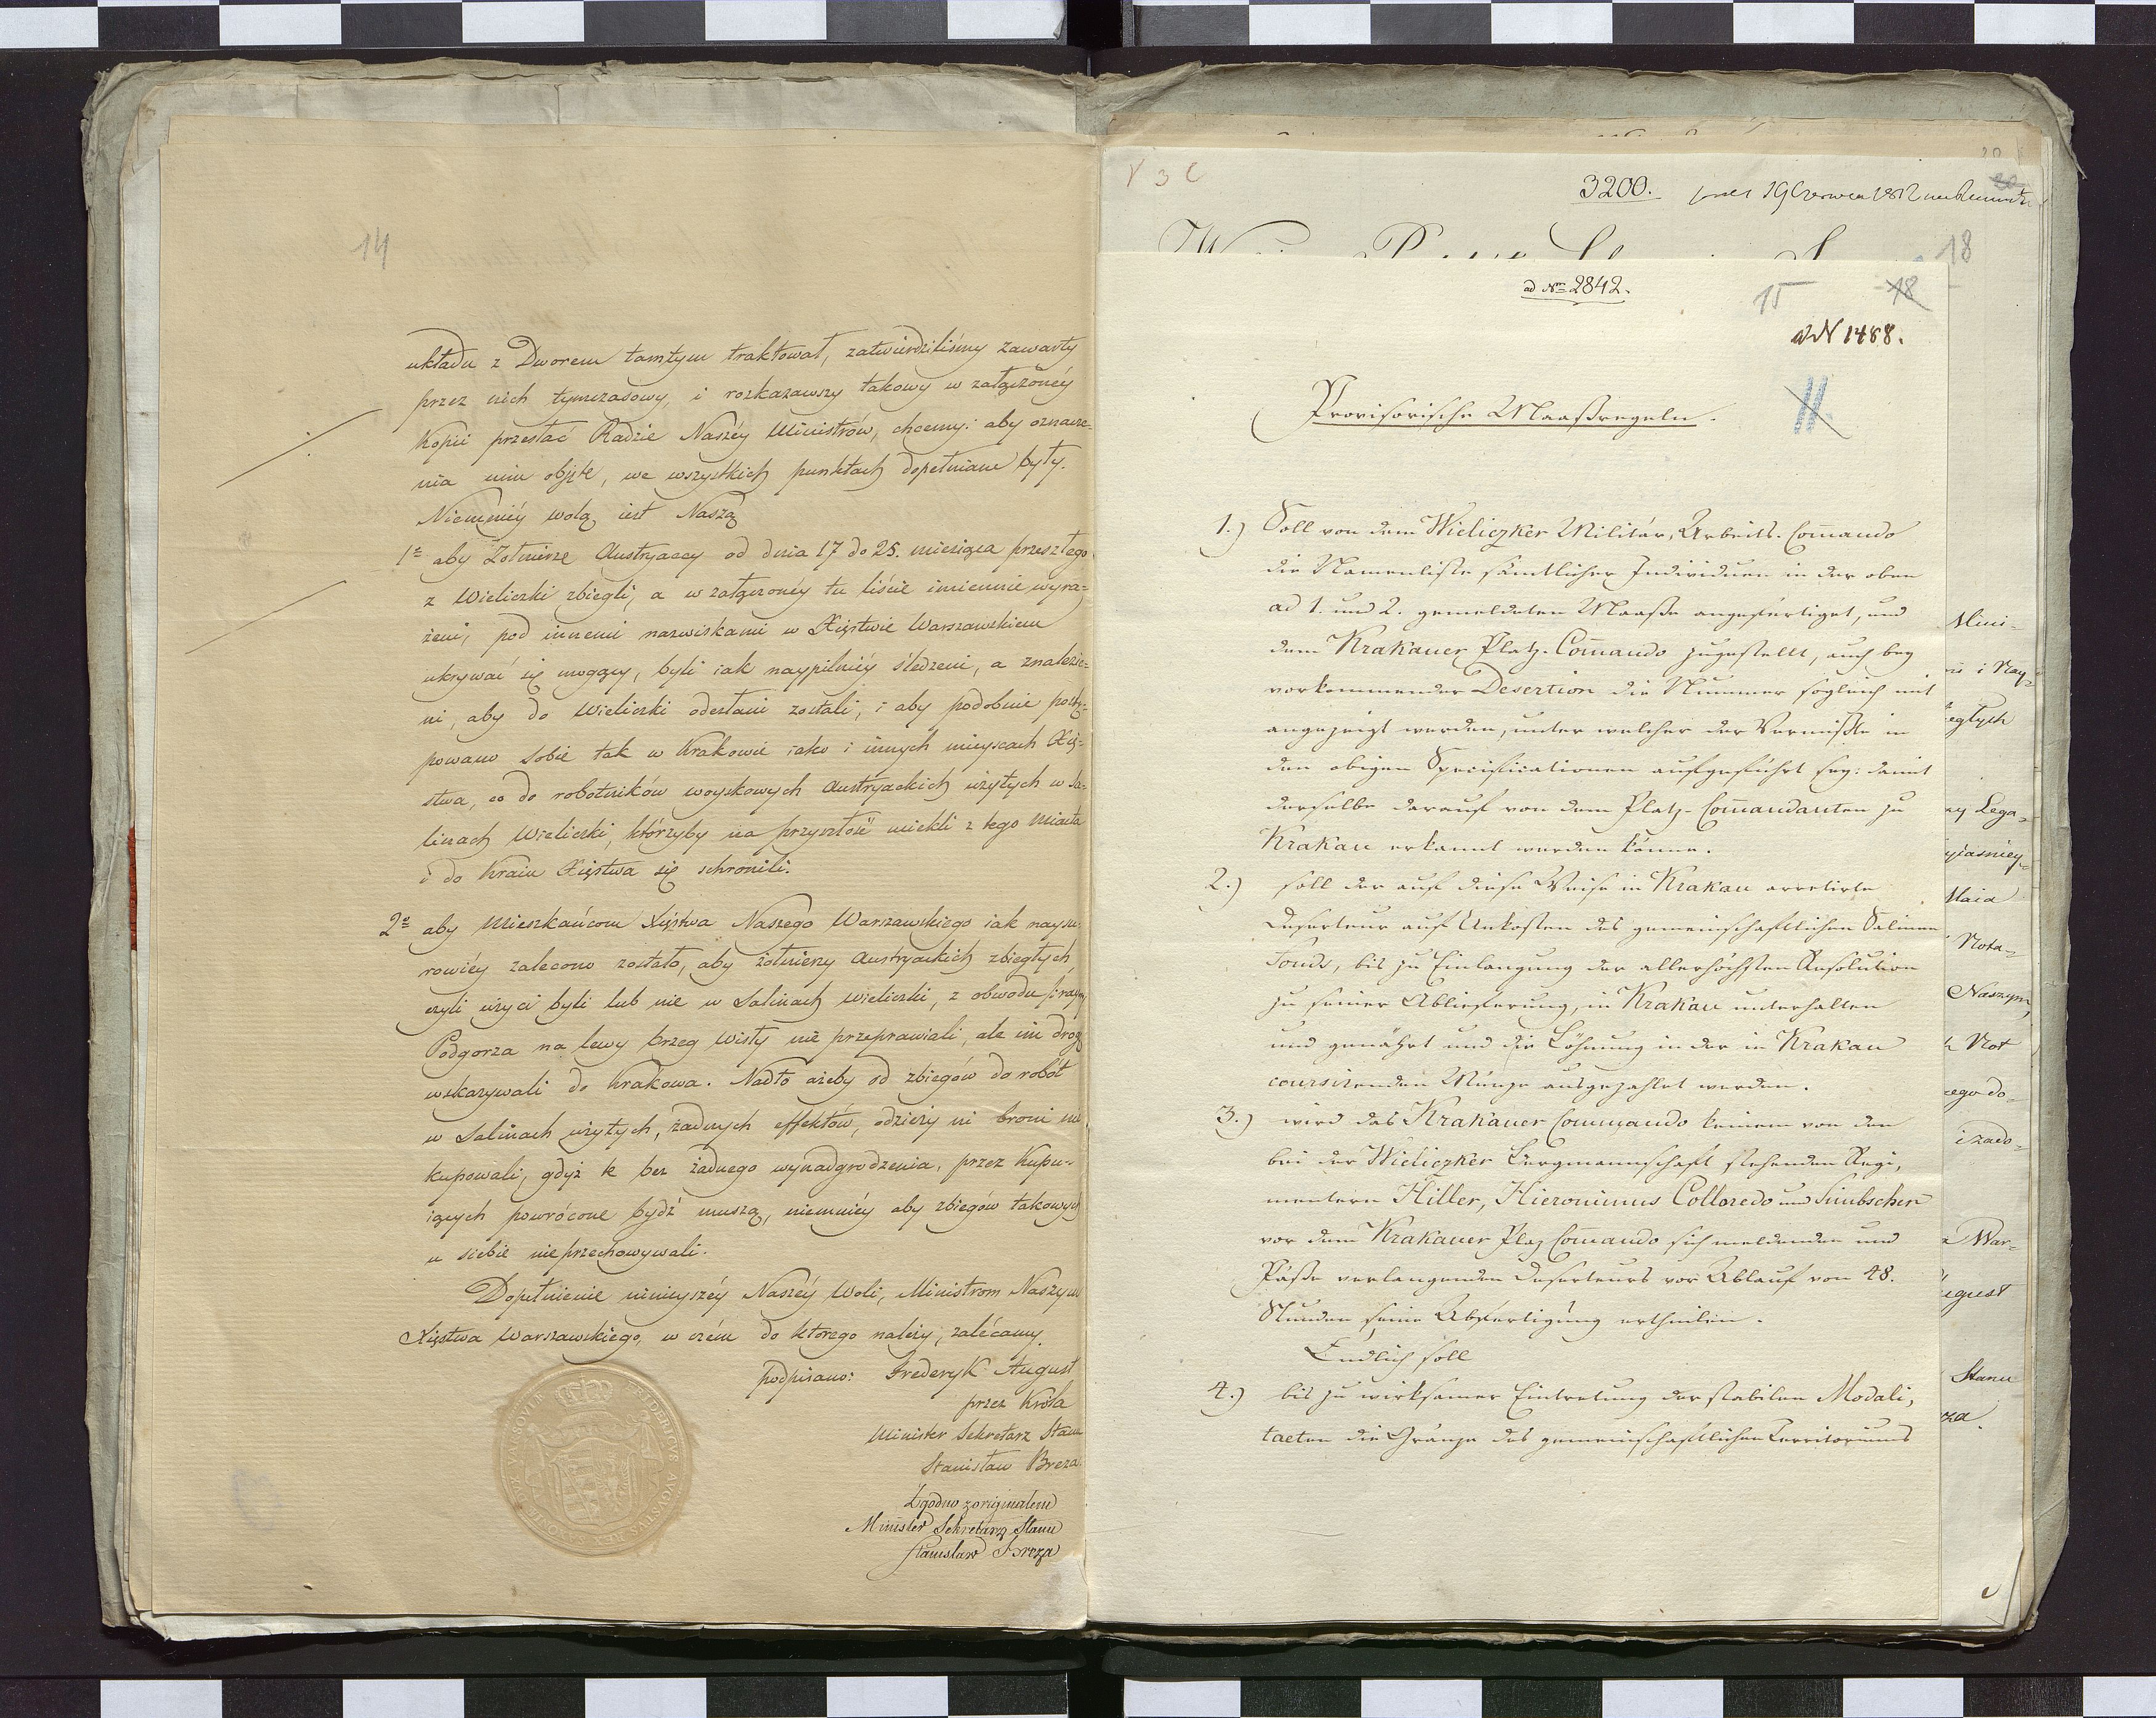 14
układu z Dworem tamtym traktował, zatwierdziliśmy zawarty
przez nich tymczasowy, i rozkazawszy takowy w załączonéy
kopii przesłać Radzie Naszéy Ministrów, chcemy: aby oznacze-
nia nim objęte, we wszystkich punktach dopełniane były.
Niemniéy wolą iest Naszą
1º aby Żołnierze Austryaccy od dnia 17 do 25. miesiąca przeszłego
z Wieliczki zbiegli, a w załączonéy tu liście imiennie wyra=
żeni, pod innemi nazwiskami w Xięstwie Warszawskiem
ukrywać się mogący, byli iak naypilniéy śledzeni, a znalezie=
ni, aby do Wieliczki odesłani zostali, i aby podobnie postę=
powano sobie tak w Krakowie iako i innych mieyscach Xię=
stwa, co do robotników woyskowych Austryackich użytych w Sa=
linach Wieliczki, którzyby na przyszłość uciekli z tego Miasta
i do Kraiu Xięstwa się schronili.
2º aby Mieszkańcom Xięstwa Naszego Warszawskiego iak naysu-
rowiéy zalecono zostało, aby żołnierzy Austryackich zbiegłych
czyli użyci byli lub nie w Salinach Wieliczki, z obwodu
Podgorza na lewy brzeg Wisły nie przeprawiali, ale im drogę
wskazywali do Krakowa. Nadto ażeby od zbiegów do robót
w Salinach użytych, żadnych effektów, odzieży ni broni nie
kupowali, gdyż te bez żadnego wynadgrodzenia, przez kupu-
iących powrócone bydź muszą, niemniéy aby zbiegów takowych
u siebie nieprzechowywali.
Dopełnienie ninieyszéy Naszéy Woli, Ministrom Naszym
Xięstwa Warszawskiego, w czém do ktorego należy, zalécamy.
podpisano: Frederyk August
przez Króla
Minister Sekretarz Stanu
Stanisław Breza
Zgodno z originałem
Minister Sekretarz Stanu
Stanisław Breza
3200.
19 Czerwca 1812
18
ad Nro 2842.
15
18
ad N 1488.
Provisorische Maaßregeln.
1.) Soll von dem Wieliczker Militär-Arbeits-Com̄ando
die Namenliste sämtlicher Individuen in der oben
ad 1. und 2. gemeldeten Maaße angefertiget, und
dem Krakauer Platz-Com̄ando zugestellt, auch bey
vorkommender Desertion die Nummer sogleich mit
angezeigt werden, unter welcher der Vermißte in
den obigen Specificationen aufgeführt sey: damit
derselbe darauf von dem Platz-Com̄andanten zu
Krakau erkannt werden könne.
2.) soll der auf diese Weise in Krakau arretirte
Deserteur auf Unkosten des gemeinschaftlichen Salinen
Fonds, bis zu Einlangung der allerhöchsten Resolution
zu seiner Ablieferung, in Krakau unterhalten
und genährt und die Löhnung in der in Krakau
coursirenden Münze ausgezahlet werden.
3.) wird das Krakauer Commando keinem von den
bei der Wieliczker Bergmannschaft stehenden Regi-
mentern Hiller, Hieronimus Colloredo und Simbschen
vor dem Krakauer Plaz Com̄ando sich meldenden und
Päße verlangenden Deserteurs vor Ablauf von 48.
Stunden seine Abfertigung ertheilen.
Endlich soll
4.) bis zu wirksamer Eintretung der stabilen Modali-
taeten die Gränze des gemeinschaftlichen Territoriums
egłych
ny Lega=
yiasniey=
Maia
Nota=
Naszym
Not
ego do=
i zado=
War=
ugust
Stanu
za